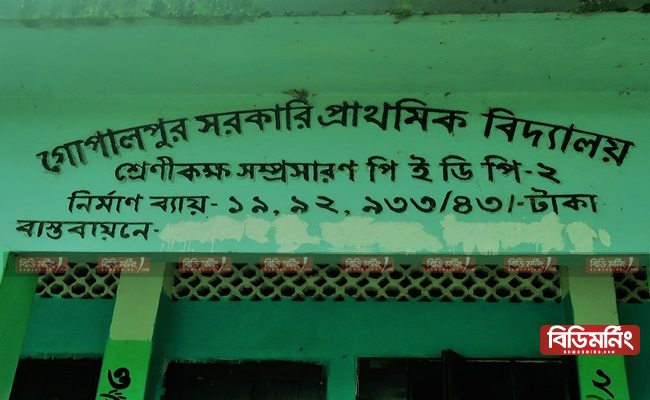 গোপালপুর সরকারি প্রাথমিক বিদ্যালয়
শ্রেণীকক্ষ সম্প্রসারণ পি ই ডি পি-২
নির্মাণ ব্যায়- ১৯, ৯২, ৯৩৩/৪৩/-টাকা
বাস্তবায়নে-
বিডিমর্নিং বিডিমর্নিং বিডিমর্নিং বিডিমর্নিং বিডিমর্নিং বিডিমর্নিং বিডিমর্নিং বিডিমর্নিং
বিডিমর্নিং
BDMORNING.COM
৩
২